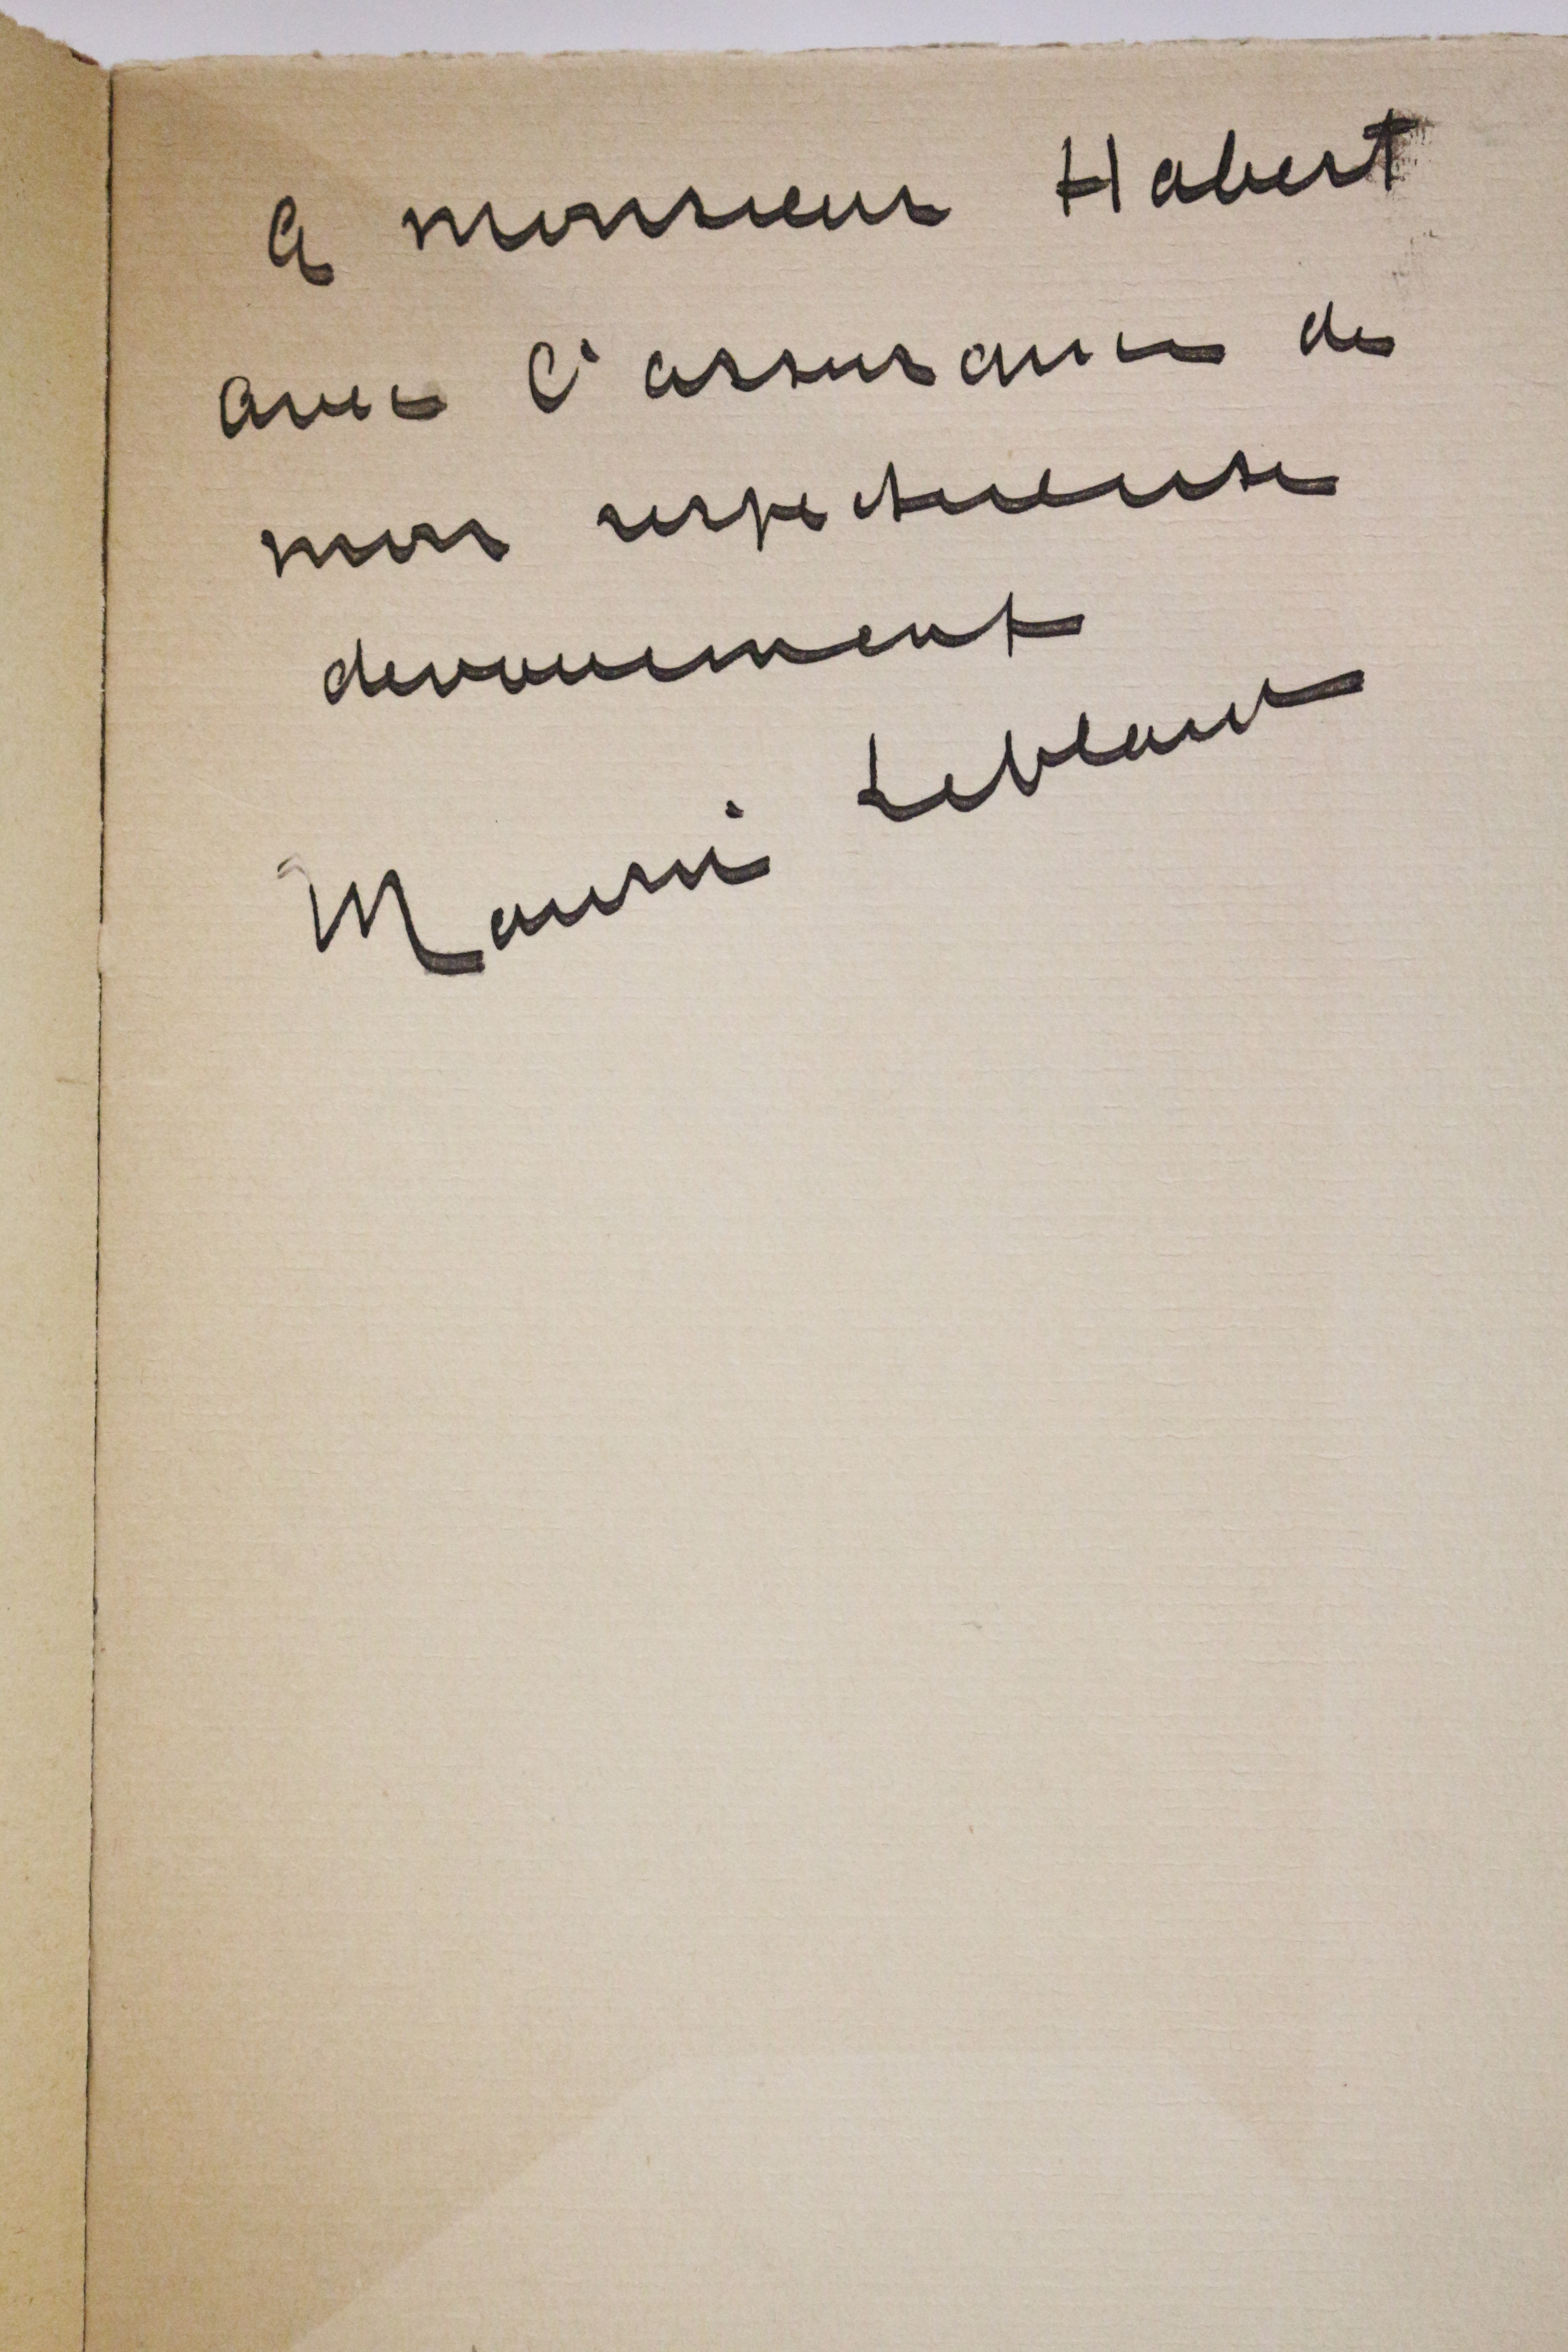 A monsieur Habert
avec l'assurance de
mon respectueuse
devouement
Maurice Leblanc